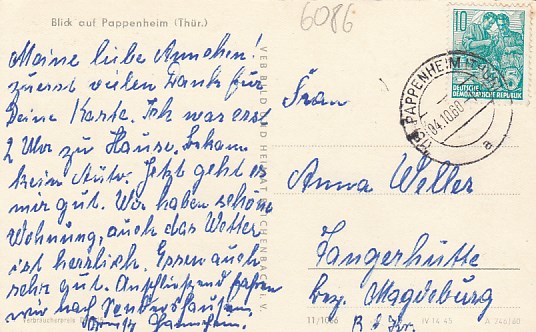 Blick auf Pappenheim (Thür.)
6086
Meine liebe Annchen!
zuerst vielen Dank für
Deine Karte. Ich war erst
2 Uhr zu Hause. Bekam
kein Auto. Jetzt geht es
mir gut. Wir haben schöne
Wohnung, auch das Wetter
ist herrlich. Essen auch
sehr gut. Anschließend fahren
wir nach
Verbraucherpreis
VEB BILD UND HEIMAT REICHENBACH i. V.
10
DEUTSCHE
DEMOKRATISCHE REPUBLIK
PAPPENHEIM (THÜR)
04.10.60
a
Frau
Anna Weller
Tangerhütte
bez. Magdeburg
11/1086
IV 14 45
A 746/60